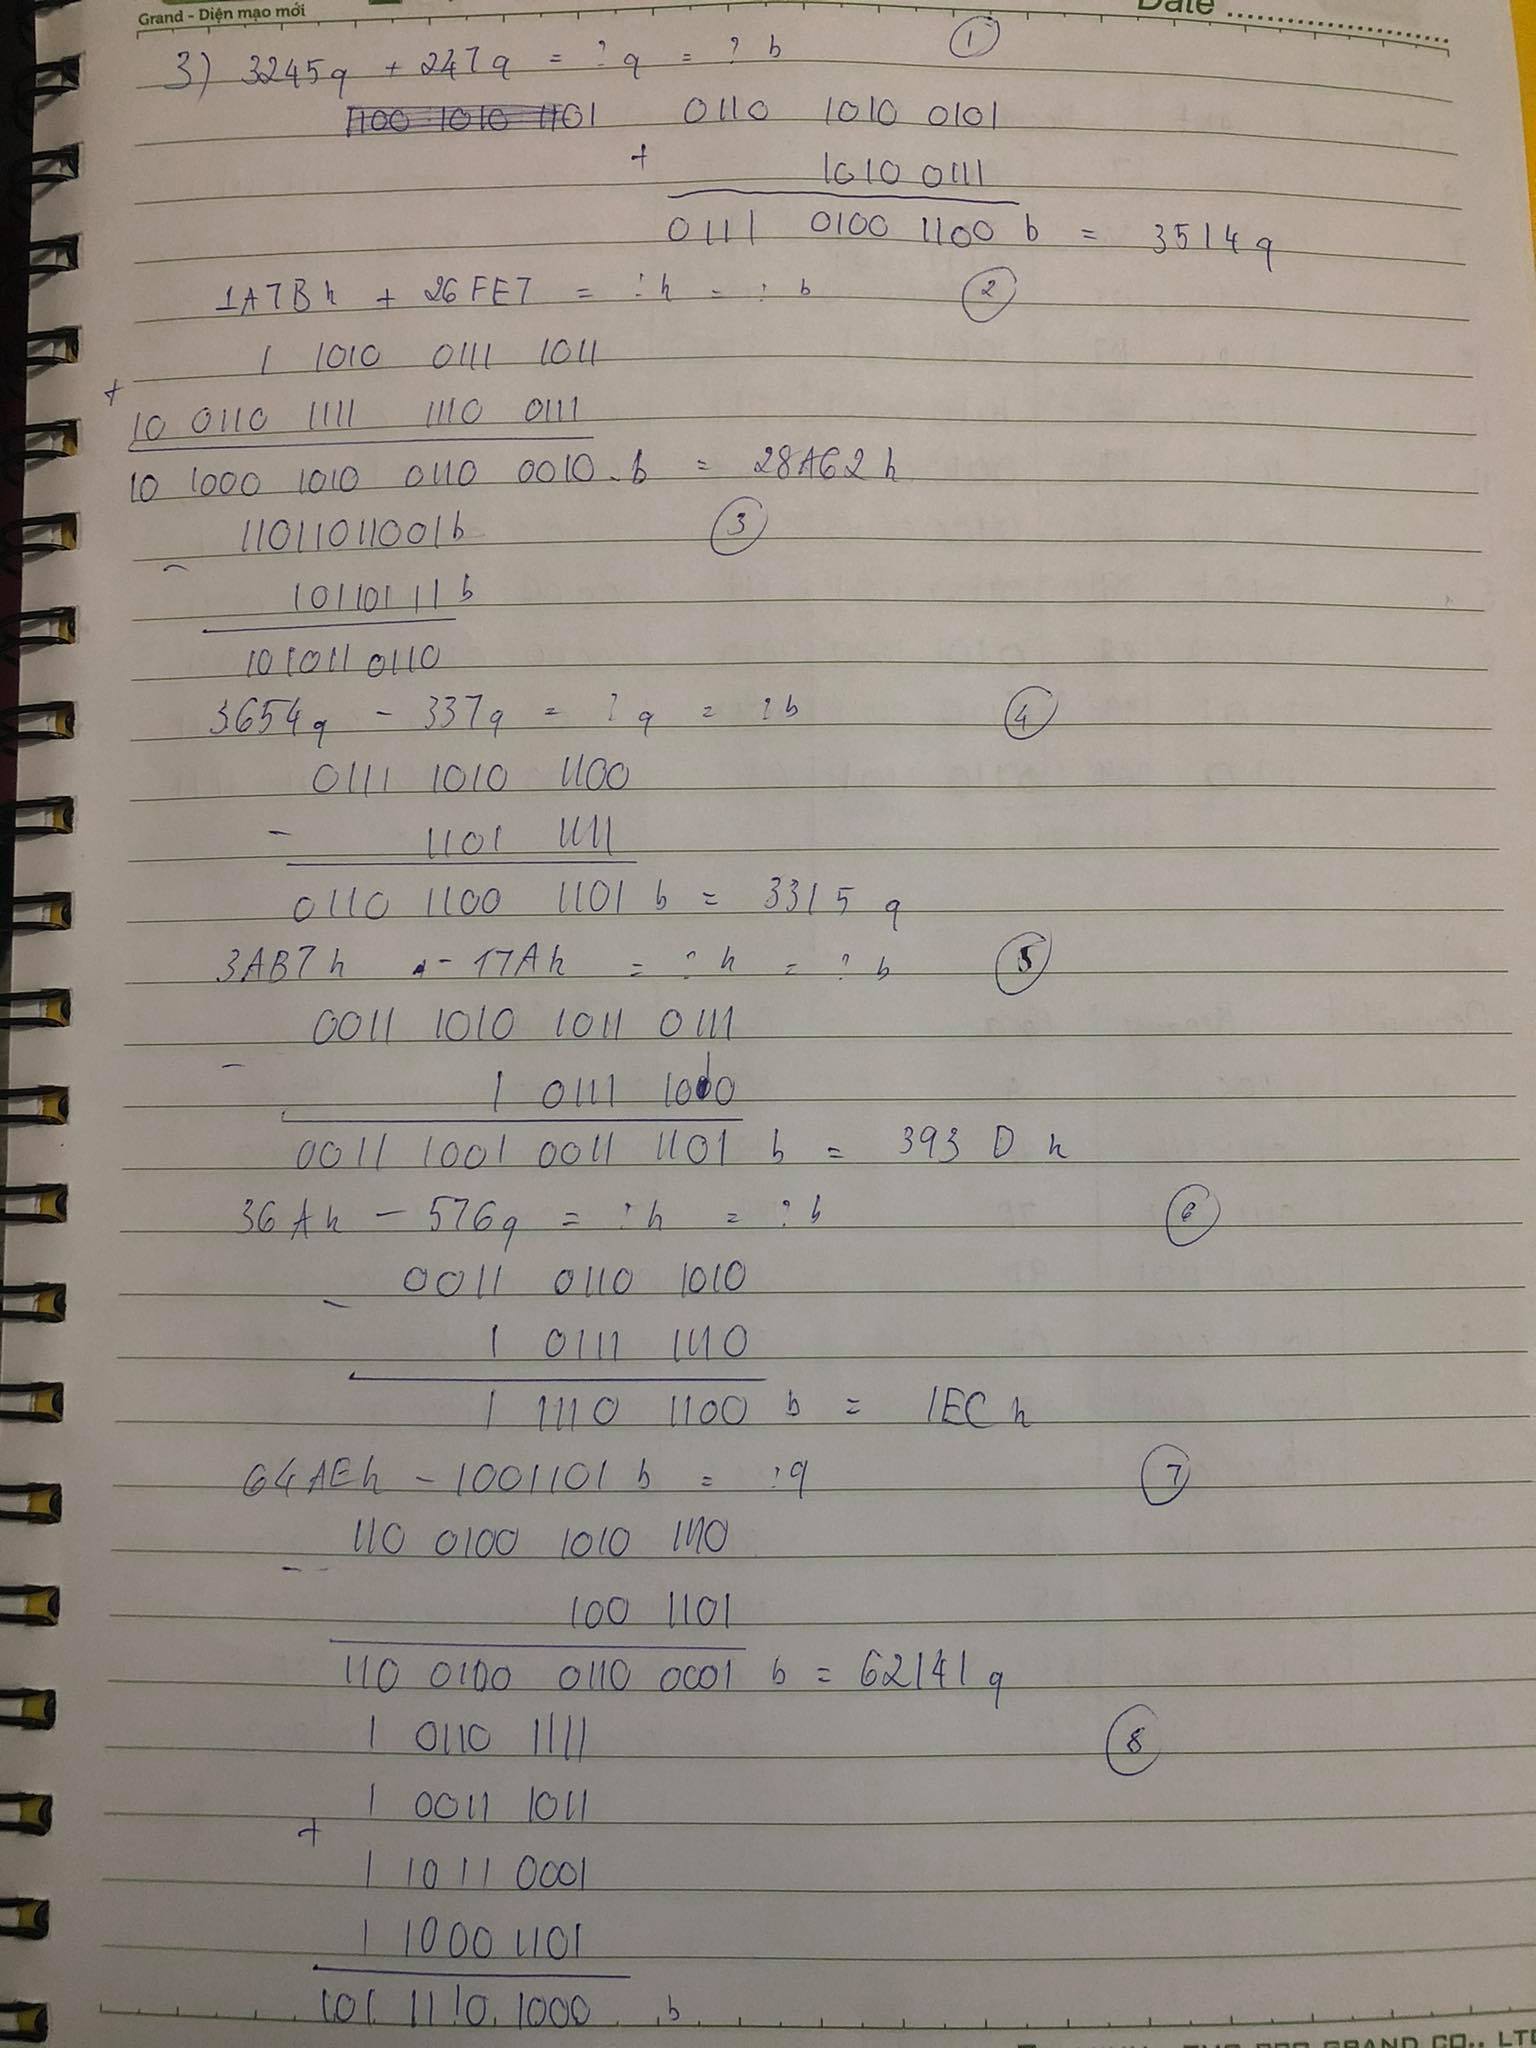 Grand - Diện mạo mới
Date
3) 3245q + 247q = ? q = ? b ①
1100 1010 1101 0110 1010 0101
+ 1010 0111
0111 0100 1100 b = 3514q
1A7Bh + 26FE7 = ? h = ? b ②
1 1010 0111 1011
+
10 0110 1111 1110 0111
10 1000 1010 0110 0010 b = 28A62h
11011011001b ③
-
10110111b
1010110110
3654q - 337q = ? q = ? b ④
0111 1010 1100
- 1101 1111
0110 1100 1101 b = 3315 q
3AB7h - 17Ah = ? h = ? b ⑤
0011 1010 1011 0111
-
1 0111 1010
0011 1001 0011 1101 b = 393D h
36Ah - 576q = ? h = ? b ⑥
0011 0110 1010
-
1 0111 1110
1 1110 1100 b = 1EC h
64AEh - 1001101 b = ? q ⑦
110 0100 1010 1110
-
100 1101
110 0100 0110 0001 b = 62141 q
1 0110 1111 ⑧
1 0011 1011
+
1 1011 0001
1 1000 1101
101 1110 1000 b
GRAND CO., LTD